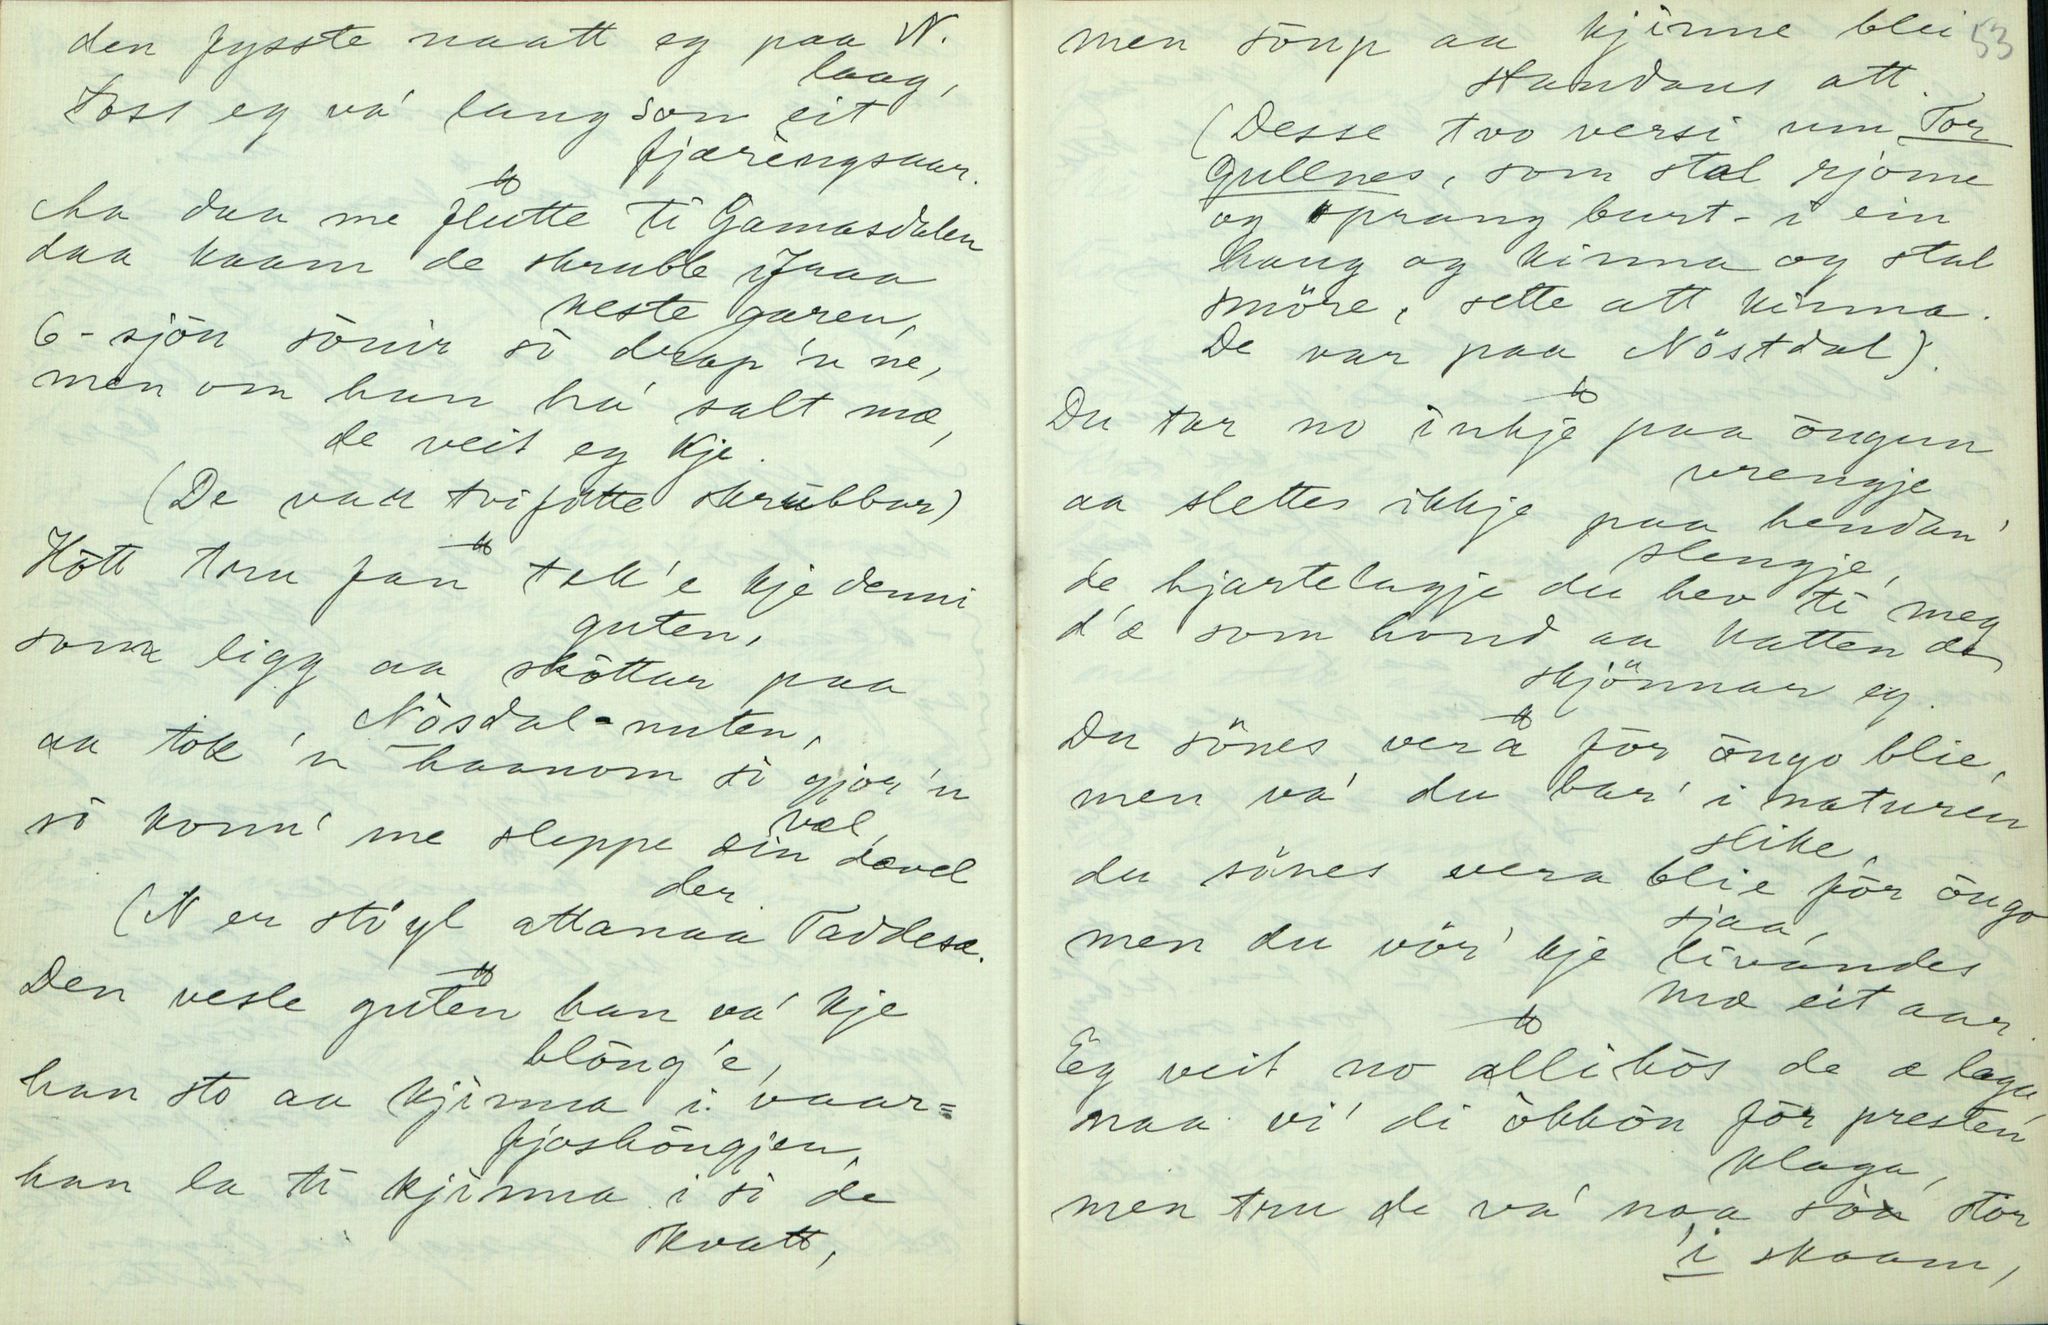 den fysste naatt eg paa N.
laag,
toss eg va' lang som eit
fjæringsaar.
Aa daa me flutte ti Gamasdalen
daa kaam de skrubb ifraa
neste garen,
6-sjön sönir sö drap 'n ne,
men om han ha' salt mæ,
de veit eg kje.
(De var tviføtte skrubbar)
Høtt tru fan tok 'e kje denni
guten,
som ligg aa skøttar paa
Nösdal-nuten,
aa tok 'n haanom so gjor 'n
væl,
sö konn' me sleppe ein dævel
der.
(N er stöyl attanaa Taddesæ.
Den vesle guten han va' kje
blöng 'e,
han sto aa kjinna i vaar=
fjoshöngjen,
han la ti kjinna i sö de
skvatt,
53
men sönp aa kjinne blei
standans att.
(Desse tvo versi um Tor
Gullnes, som stal rjome
og sprang burt - i ein
haug og kinna og stal
smöre, sette att kinna.
De var paa Nöstdal).
Du tar no inkje paa öngun
vrengje
aa slettes ikkje paa hendan'
slengje,
de hjartelagje du hev ti meg
d'æ som hond aa katten de
skjönnar eg.
Du sönes vera för öngo blie,
men va' du bar' i naturen
slike,
du sönes vera blie för öngo
sjaa,
men du vör' kje livandes
mæ eit aar.
Eg veit no alli hös de æ laga,
naa vi' di ökkön för presten
klaga,
men tru de va' naa söa stor
'i skaam,